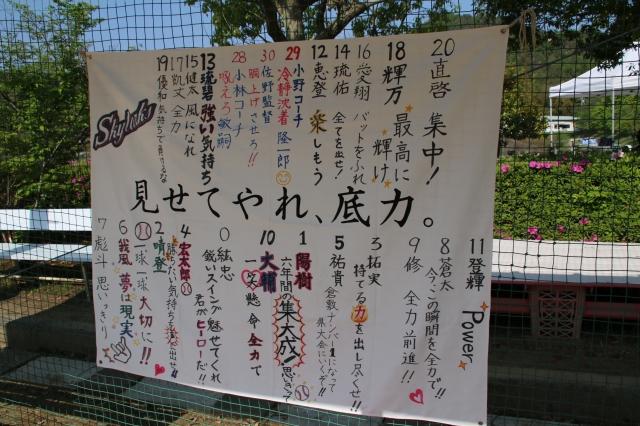 20 直啓 集中!
18 輝万 最高に輝け
16 悠翔 バットをふれ
14 琉佑 全てを出せ!
12 恵登 楽しもう
29 小野コーチ 冷静沈着 隆一郎
30 佐野監督 胴上げさせろ!!
28 小林コーチ 吠えろ 敏嗣
13 琉碧 強い気持ち
15 健太 風になれ
17 凱丈 全力
19 優和 気持ちで負けるな
Skylark
見せてやれ、底力。
11 登輝 Power
8 蒼太 今、この瞬間を全力で!!
9 修 全力前進!!
3 拓実 持てる力を出し尽くせ!!
5 祐貴 倉敷ナンバー1になって県大会にいくぞ!
1 陽樹 六年間の集大成!思いきって
10 大翔 一生懸命 全力で
0 紘忠 鋭いスイングが魅せてくれ 君がヒーローだ!!
4 宏太郎 勝ちたい気持ちを出せ!!
2 晴登 一球一球 大切に!!
6 我風 夢は現実
7 彪斗 思いっきり